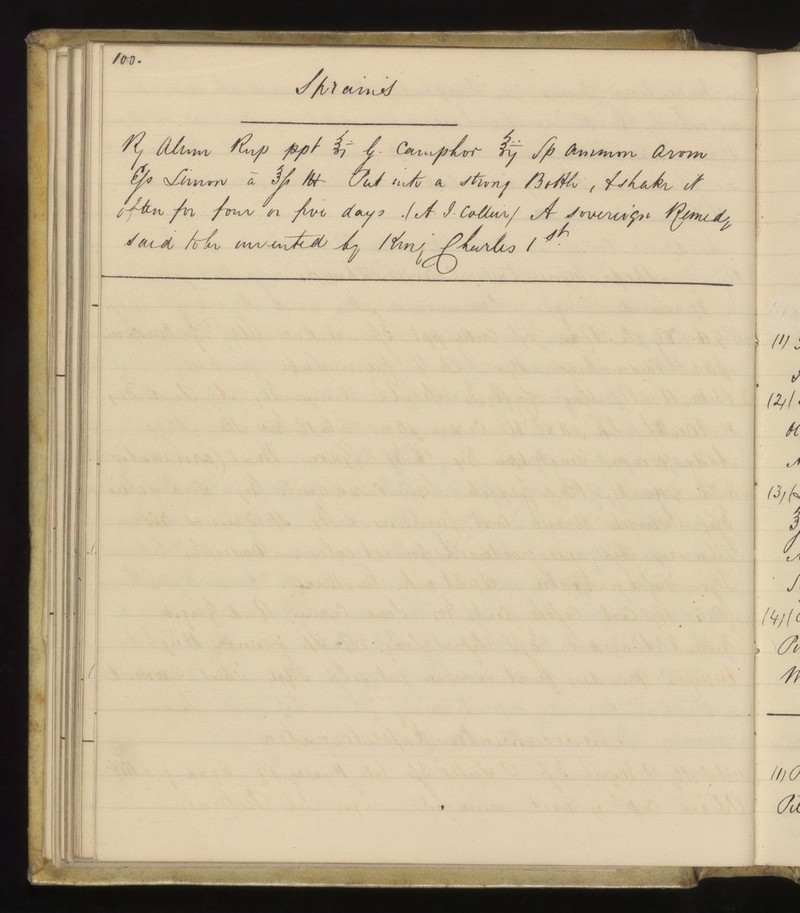 100.
Sprains
℞ Alum Rup ppt ℥j G. Camphor ℥ij Sp ammon arom
Ess Limon a ℥ss M Put into a strong Bottle, & shake it
often for four or five days. (A. J. Collier) A sovereign Remedy
said to be invented by King Charles 1st.
(1)
(2)
(3)
(4)
(1)